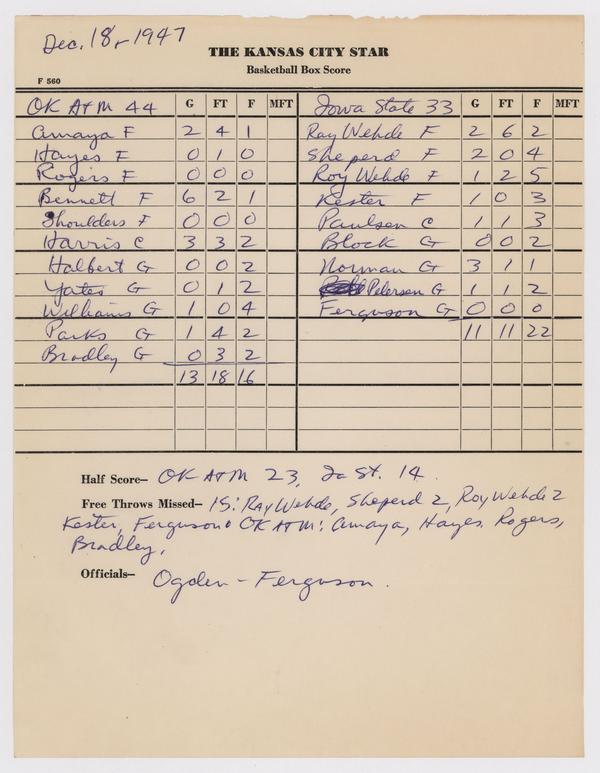 Dec. 18, 1947
THE KANSAS CITY STAR
Basketball Box Score
F 560
OK A+M 44 G FT F MFT Iowa State 33 G FT F MFT
Amaya F 2 4 1 Ray Wehde F 2 6 2
Hayes F 0 1 0 Sheperd F 2 0 4
Rogers F 0 0 0 Roy Wehde F 1 2 5
Bennett F 6 2 1 Kester F 1 0 3
Shoulders F 0 0 0 Paulsen C 1 1 3
Harris C 3 3 2 Block G 0 0 2
Halbert G 0 0 2 Norman G 3 1 1
Yates G 0 1 2 Petersen G 1 1 2
Williams G 1 0 4 Ferguson G 0 0 0
Parks G 1 4 2 11 11 22
Bradley G 0 3 2
13 18 16
Half Score— OK A+M 23, Ia St. 14.
Free Throws Missed— IS: Ray Wehde, Sheperd 2, Roy Wehde 2
Kester, Ferguson. OK A+M: Amaya, Hayes, Rogers,
Bradley.
Officials— Ogden - Ferguson.